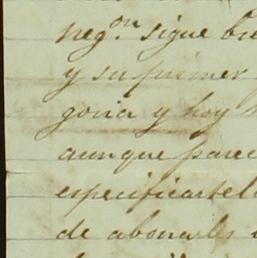 neg.on sigue bie
y su primer
goria y hoy
aunque parec
especificartel
de abonarles